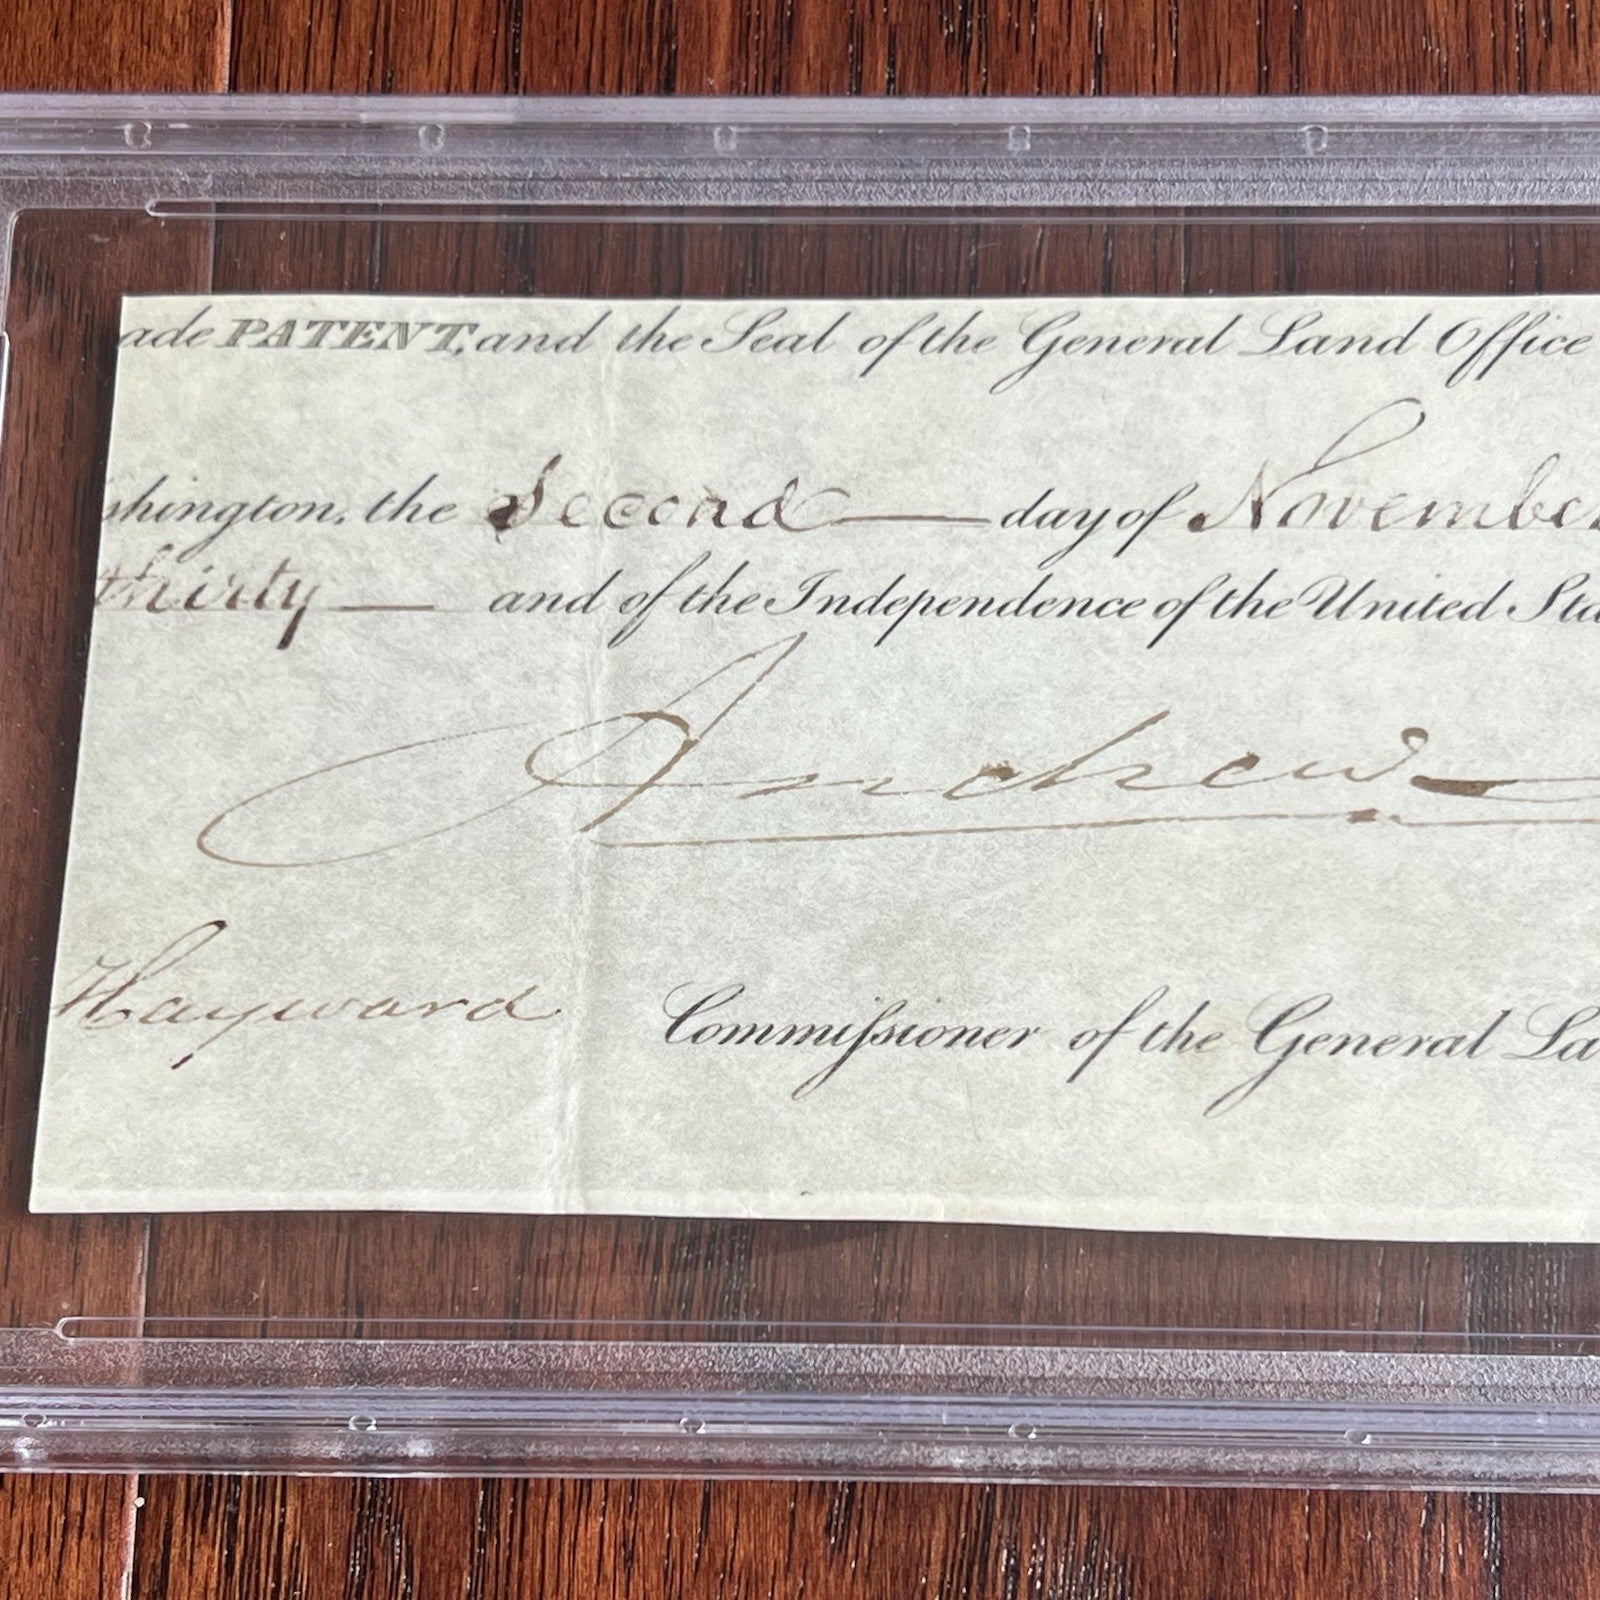 ade PATENT, and the Seal of the General Land Office
shington, the Second — day of November
thirty — and of the Independence of the United Sta
Andrew
Hayward Commissioner of the General La